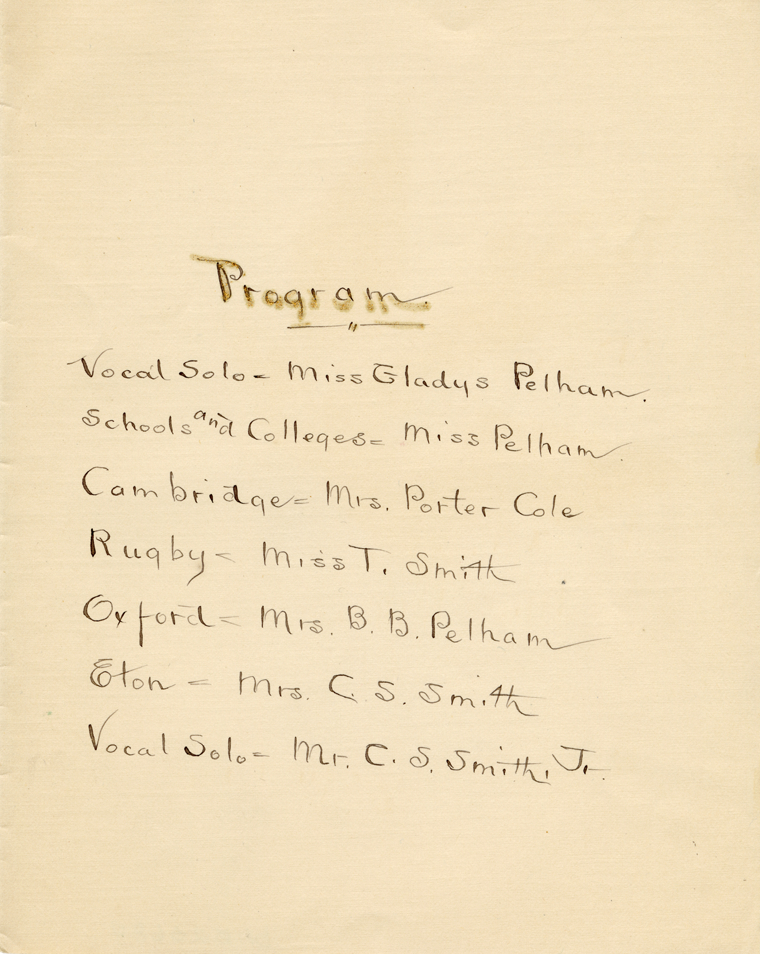 Program.
Vocal Solo = Miss Gladys Pelham.
Schools and Colleges = Miss Pelham.
Cambridge = Mrs. Porter Cole
Rugby = Miss T. Smith
Oxford = Mrs. B. B. Pelham
Eton = Mrs. C. S. Smith
Vocal Solo = Mr. C. S. Smith, Jr.